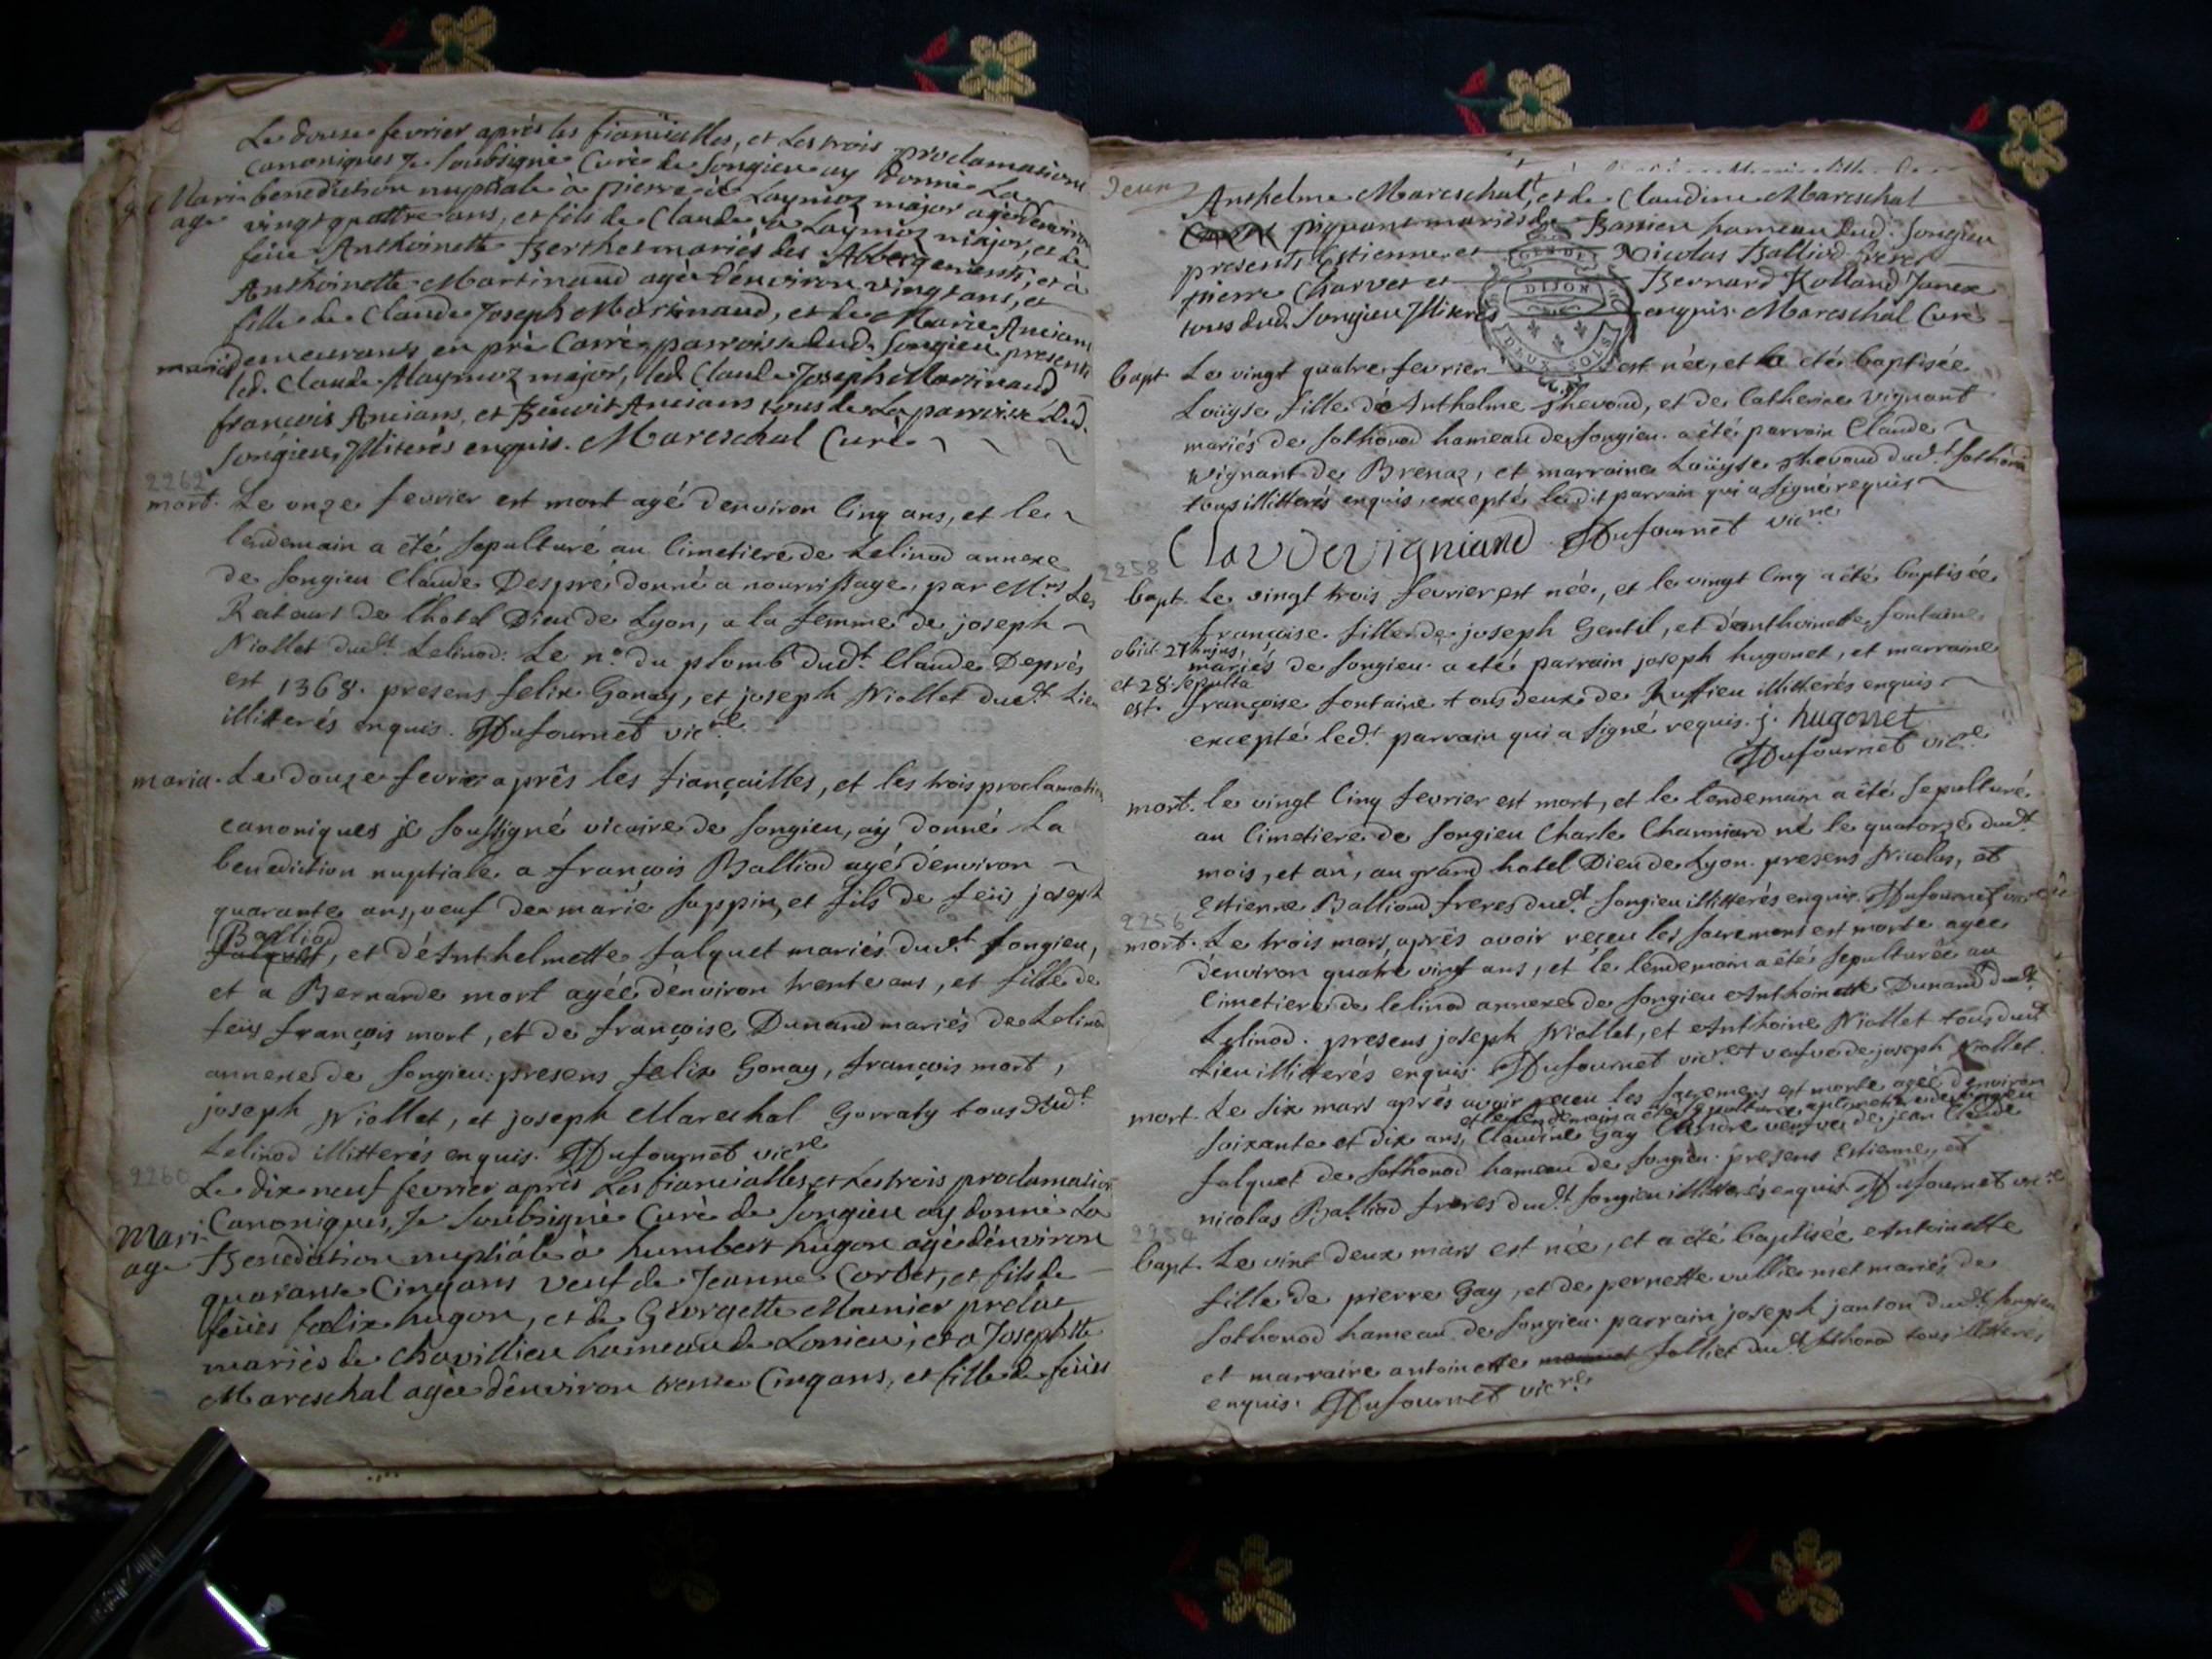 Le douse fevrier après les fiançialles, et Les trois proclamations
canoniques Je soubsigné Curé de Songieu ay donné La
Mari benediction nuptiale à pierre Laymoz major agé denviron
age vingt quattre ans, et fils de Claude Laymoz major, et de
feüe Anthoinette Berthet mariés des Abbergements, et à
Anthoinette Martinaud agée d'environ vingt ans, et
fille de Claude Joseph Martinaud, et de Marie Anciam
mariés demeurants en pré Carré parroisse dud. Songieu presents
led. Claude Laymoz major, led. Claude Joseph Martinaud
françois Anciam, et Benoit Anciam tous de La parroisse dud.
Songieu, Illiterés enquis. Mareschal Curé
2262
mort. Le onze fevrier est mort agé denviron Cinq ans, et le
lendemain a été sepulturé au Cimetiere de Lelinod annexe
de songieu Claude Despré donné a nourrissage, par Mrs Les
Rateurs de l'hotel Dieu de Lyon, a la femme de joseph
Niollet dudt. Lelinod. Le n.º du plomb dudt. Claude Deprés
est 1368. presens felix Gonay, et joseph Niollet dudt. Lieu
illitterés enquis. Dufournet vicre
maria. Le douze fevrier après les fiançailles, et les trois proclamations
canoniques je soussigné vicaire de songieu, aÿ donné La
benediction nuptiale a françois Balliod agé d'environ
quarante ans, veuf de marie suppin, et fils de feüs joseph
Balliod
falquet, et d'Anthelmette falquet mariés dudt. songieu,
et a Bernarde mort agée d'environ trente ans, et fille de
feüs françois mort, et de françoise Dunand mariés de Lelinod
annexe de songieu: presens felix Gonay, françois mort,
joseph Niollet, et joseph Mareschal Gorraty tous dudt
Lelinod illitterés enquis. Dufournet vicre
2260
Le dix neuf fevrier après Les fiançialles, et Les trois proclamations
Mari Canoniques, Je soubsigné Curé de Songieu ay donné La
age Benediction nuptiale à humbert hugon agé d'environ
quarante Cinq ans veuf de Jeanne Corbet, et fils de
feües felix hugon, et de Georgette Munier
mariés de Chavillieu hameau de Lonieu, et a Josephtte
Mareschal agée d'environ trente Cinq ans, et fille de feües
Deux
Anthelme Mareschal, et de Claudine Mareschal
piquant mariés de Bassieu hameau dud. Songieu
presents Estienne et Nicolas Balliod freres
pierre Charvet et Bernard Rolland Janex
tous dud. Songieu Illiterés enquis. Mareschal Curé
GEN DE
DIJON
DEUX SOLS
bapt. Le vingt quatre fevrier est née, et a été baptisée
Loüyse fille d'Anthelme Thevond, et de Catherine vignant
mariés de sothonod hameau de songieu. a été parrain Claude
vignant de Brenaz, et marraine Loüyse Thevond dudt. sothonod
tous illitterés enquis, excepté le dit parrain qui a signé requis
Clavde vigniand Dufournet vicre
2258
bapt. Le vingt trois fevrier est née, et le vingt Cinq a été baptisée
françoise fille de joseph Gentil, et d'anthoinette fontaine
obiit 27 hujus,
mariés de songieu. a été parrain joseph hugonet, et marraine
et 28 sepulta
est. françoise fontaine tous deux de Ruffieu illitterés enquis
excepté ledt. parrain qui a signé requis. j. hugonet
Dufournet vicre
mort. le vingt Cinq fevrier est mort, et le lendemain a été sepulturé
au Cimetiere de songieu Charle Charniard né le quatorze dudt.
mois, et an, au grand hotel Dieu de Lyon. presens Nicolas, et
Estienne Balliod freres dudt. songieu illitterés enquis. Dufournet vicre
2256
mort. Le trois mars, après avoir reçeu les sacremens est morte agée
d'environ quatre vingt ans, et le lendemain a été sepulturée au
Cimetiere de lelinod annexe de songieu Anthoinette Dunand dudt.
Lelinod. presens joseph Niollet, et Anthoine Niollet tous dudt
Lieu illitterés enquis. Dufournet vicre et veufve de joseph Niollet.
mort. Le six mars après avoir reçeu les sacremens est morte agée d'environ
et le lendemain a été sepulturée au cimetiere de songieu
soixante et dix ans, Claudine Gay veufve de jean Claude
falquet de sothonod hameau de songieu. presens Estienne, et
nicolas Balliod freres dudt. songieu illitterés enquis Dufournet vicre
2254
bapt. Le vint deux mars est née, et a été baptisée Antoinette
fille de pierre Gay, et de pernette vulliermet mariés de
sothonod hameau de songieu. parrain joseph janton dudt. songieu
et marraine antoinette folliet dudt. sothonod tous illitterés
enquis. Dufournet vicre